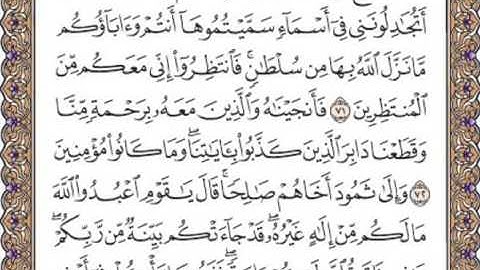 أَتُجَٰدِلُونَنِى فِىٓ أَسْمَآءٍ سَمَّيْتُمُوهَآ أَنتُمْ وَءَابَآؤُكُم
مَّا نَزَّلَ ٱللَّهُ بِهَا مِن سُلْطَٰنٍ ۚ فَٱنتَظِرُوٓا۟ إِنِّى مَعَكُم مِّنَ
ٱلْمُنتَظِرِينَ ٧١ فَأَنجَيْنَٰهُ وَٱلَّذِينَ مَعَهُۥ بِرَحْمَةٍ مِّنَّا
وَقَطَعْنَا دَابِرَ ٱلَّذِينَ كَذَّبُوا۟ بِـَٔايَٰتِنَا ۖ وَمَا كَانُوا۟ مُؤْمِنِينَ
٧٢ وَإِلَىٰ ثَمُودَ أَخَاهُمْ صَٰلِحًا ۗ قَالَ يَٰقَوْمِ ٱعْبُدُوا۟ ٱللَّهَ
مَا لَكُم مِّنْ إِلَٰهٍ غَيْرُهُۥ ۖ قَدْ جَآءَتْكُم بَيِّنَةٌ مِّن رَّبِّكُمْ ۖ